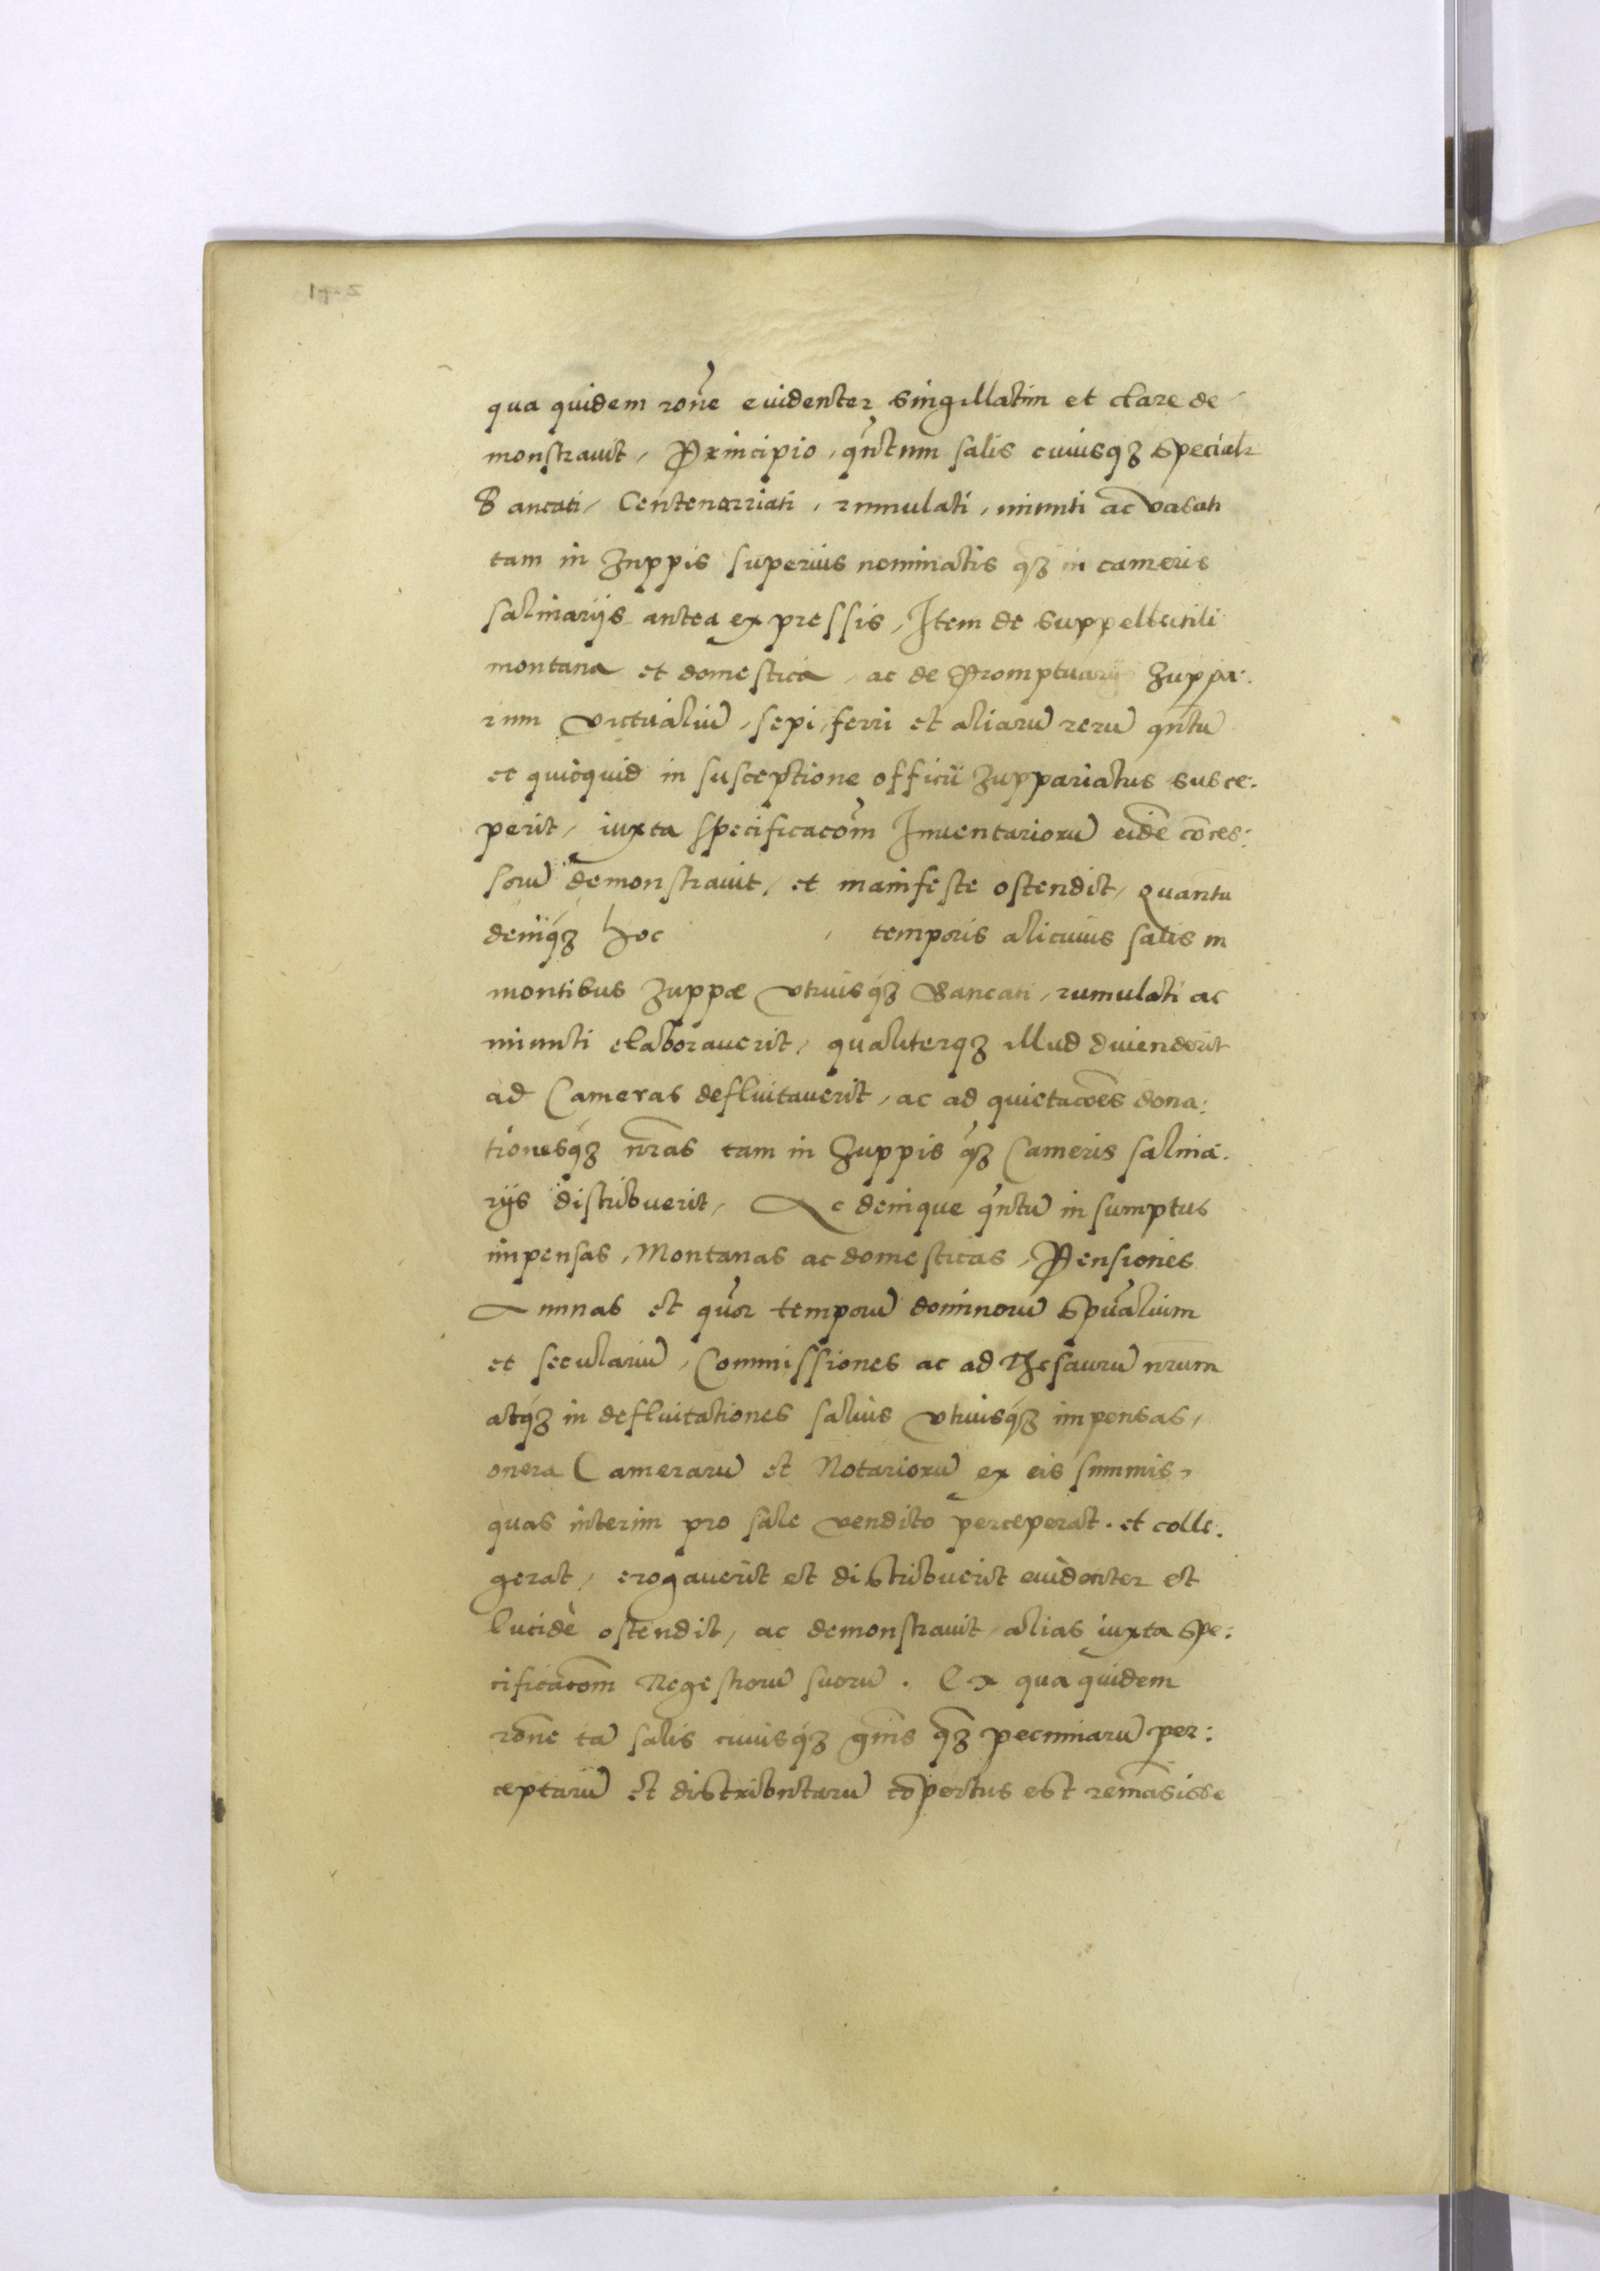 qua quidem rone euidenter singillatim et clare de
monstrauit, Principio, qntum salis cuiusqz speciali
Bancati, Centenarriati, rumulati, minuti ac vasati
tam in Zuppis superius nominatis qz in cameris
salinarijs antea expressis, Item de suppellectili
montana et domestica, ac de Promptuarij Zuppa:
rum victualiu, sepi, ferri et aliaru reru qntu
et quicquid in susceptione officii Zuppariatus susce:
perit, iuxta specificacom Inuentarioru eide coces:
soru demonstrauit, et manifeste ostendit, Quantu
deniqz hoc , temporis alicuius salis in
montibus Zuppæ vtriusqz Bancati, rumulati ac
minuti elaborauerit, qualiterqz illud diuenderit
ad Cameras defluitauerit, ac ad quietacoes dona:
tionesqz nras tam in Zuppis qz Cameris salina:
rijs distribuerit, Ac denique qntu in sumptus
impensas, Montanas ac domesticas, Pensiones
Annas et quor temporu dominoru spualium
et seculariu, Commissiones ac ad Thesauru nrum
atqz in defluitationes salis vtriusqz impensas,
onera Cameraru et Notarioru ex eis summis,
quas interim pro sale vendito perceperat. et colle:
gerat, erogauerit et distribuerit euidenter et
lucidè ostendit, ac demonstrauit, alias iuxta spe:
cificacom Regestroru suoru. Ex qua quidem
rone ta salis cuiusqz gnis qz pecuniaru per:
ceptaru et distributaru copertus est remasisse